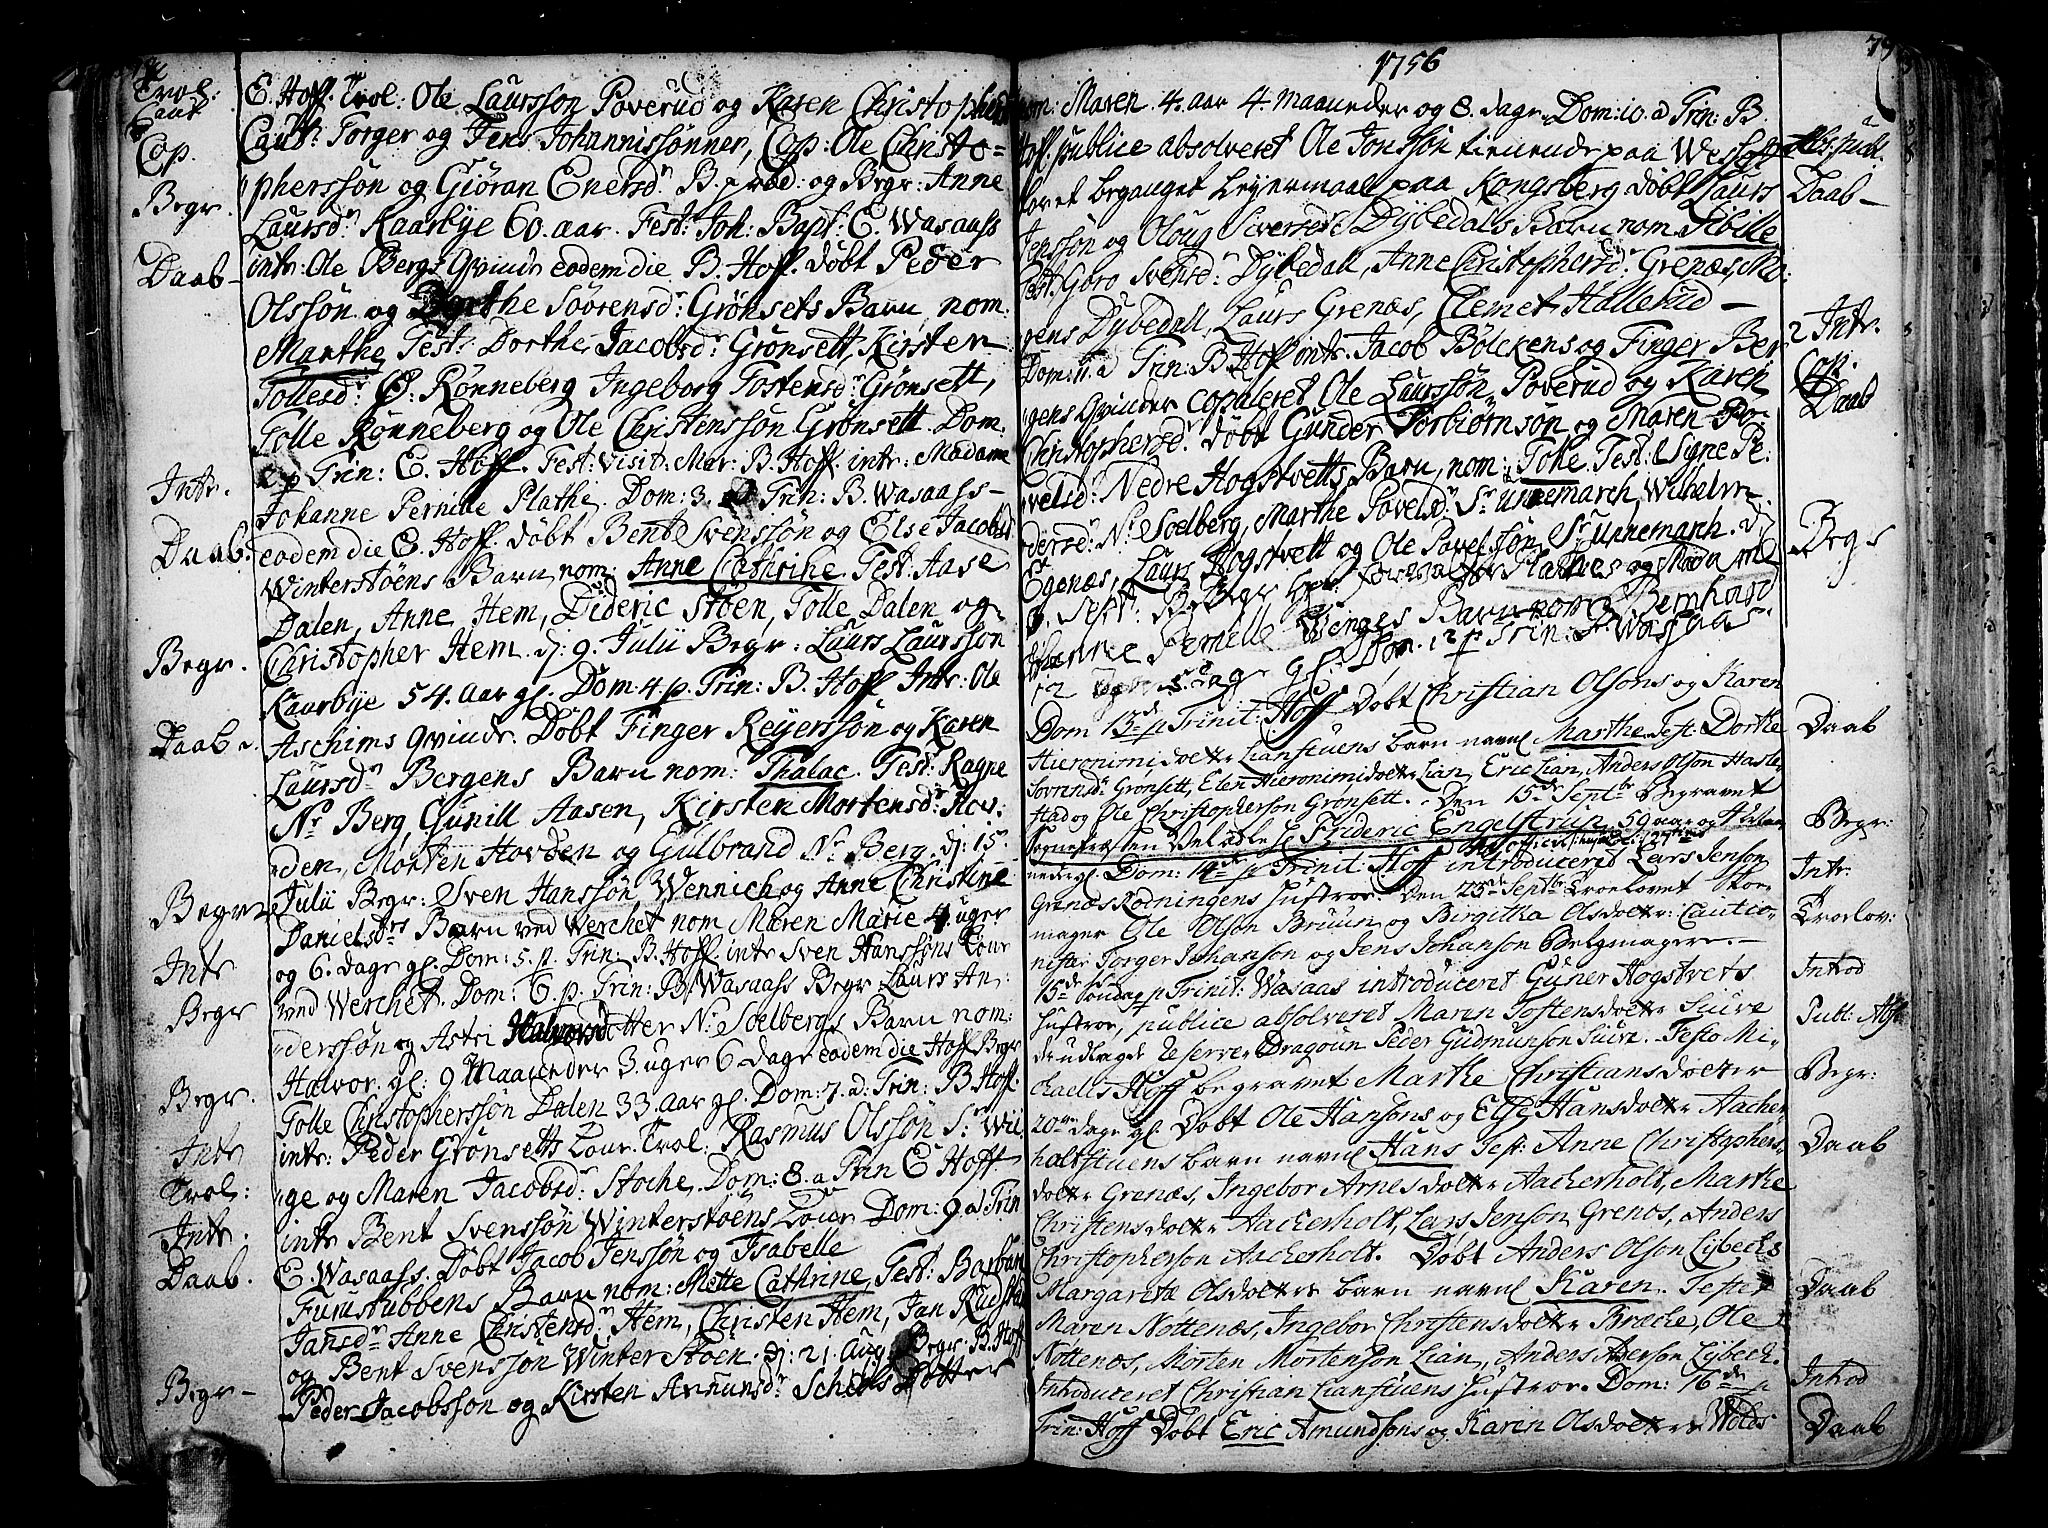 Trol:
Caut
Cop.
Begr.
Daab
Intr.
Daab.
Begr.
Daab
Begr
Intr
Begr
Begr.
Intr
Trol:
Intr.
Daab.
Begr
E. Hoff. Trol: Ole Laursson Poverud og Karen Christophersd
Caut: Torger og Jens Johannissönner, Cop: Ole Christo-
phersson og Giöran Enersd. B. Hoff og Begr: Anne
Laursd. Kaarbye 60. aar. Fest: Joh: Bapt: E. Wasaass
intr: Ole Bergs Qvinde eodem die B. Hoff. döbt Peder
Olssön og Dorthe Söorensd: Grönsets Barn, nom:
Marthe, Test: Dorthe Jacobsd: Grönsett, Kirsten
Tollesd: Rönneberg Ingeborg Tostensd: Grönsett,
Tolle Rönneberg og Ole Christenssön Grönsett. Dom:
2 p Trin: E. Hoff. Fest: Visit: Mar: B. Hoff. intr: Madame
Johanne Pernille Plathe. Dom: 3. Trin: B. Wasaass-
eodem die E. Hoff. döbt Bent Svenssön og Else Jacobsd
Winterstöens Barn, nom: Anne Cathrine Test: Aase
Dalen, Anne Hem, Dideric Stöen, Tolle Dalen og
Christopher Hem. d: 9. Julii Begr: Laurs Laurssön
Kaurbye 54. aar gl. Dom: 4 p. Trin: B. Hoff Intr: Ole
Aschims Qvinde. Döbt Finger Reyerssön og Karen
Laursd: Bergens Barn nom: Thalac. Test: Ragne
Nr Berg, Gunill Aasen, Kirsten Mortensd: Hov-
den, Morten Hovden og Gulbrand Nr Berg. d: 15.
Julii Begr: Sven Hanssön Wennich og Anne Christine
Danielsd Barn ved Werchet nom Maren Marie 4. uger
og 6. dage gl. Dom: 5. p. Trin: B. Hoff. intr Sven Hanssöns Kone
ved Werchet. Dom: 6. p. Trin: B. Wasaass Begr Laurs An-
derssön og Astri Halvorsdotter Nr Soelbergs Barn nom:
Halvor gl: 9 Maaneder 3 uger 6 dage eodem die Hoff Begr
Tolle Christopherssön Dalen 33. aar gl. Dom: 7. a: Trin: B. Hoff.
intr: Peder Grönsetts Kone. Trol: Rasmus Olssön Sr Wil-
ge og Maren Jacobsd: Stoche. Dom: 8. a Trin E Hoff
intr Bent Svenssön Winterstöens Kone Dom: 9. a Trin
E. Wasaass. Döbt Jacob Jenssön og Isabelle
Furustubbens Barn nom: Mette Cathrine, Test: Barbara
Jansd: Anne Christensd: Hem, Christen Hem, Jan
og Bent Svenssön Winterstöen. d: 21. Aug Begr. B. Hoff
Peder Jacobssön og Kirsten Amundsd: Dotter
1756
79
nom: Maren 4. aar 4. maaneder og 8. dage. Dom: 10. a Trin: B.
Hoff. publice absolveret Ole Jonssön tienende paa
foret beganget Leyermaal paa Kongsberg döbt Laurs
Jenssön og Oloug Siversd: Dybedals Barn nom Sibille
Test: Goro Svensd: Dybedall, Anne Christophersd: Grenæs, Mo-
gens Dybedall, Laurs Grenæs, Clemet Hallesrud-
Dom: 11. a Trin: B. Hoff intr: Jacob Bölckens og Finger Ber-
gens Qvinder copuleret Ole Laurssön Poverud og Karen
Christophersd: döbt Gunder Torbiörnsön og Maren Po-
velsd: Nedre Hogstvetts Barn, nom: Tohe. Test: Signe Pe-
dersd: Nr Soelberg, Marthe Povelsd: Sr Unnemarch, Wilhelm
Egenæs, Laurs Hogstvett og Ole Povelssön Sr Unnemarch. d
Sept: B. Begr Plathes og Madame
Johanne Pernille Winges Barn nom Bernhard
12 5 Dage gl. Dom. 12 p Trin: B. Wasaas
Dom 13de p Trinit: Hoff Döbt Christian Olsons og Karen
Hieronimidotter Lianstuens barn navnl Marthe Test: Dorthe
Sörensd: Grönsett, Elen Hieronimidotter Lian, Eric Lian, Anders Olson Hasle-
stad og Ole Christopherson Grönsett. Den 15de Septbr Begravet
Sognepresten Vel ædle Hr Frideric Engelstrup, 59 aar og 4 Maa-
neder gl. Dom: 14de p Trinit: Hoff introduceret Lars Jenson
Grenæs Rödningens Hustroe. Den 23de Septbr Troelovet Skoe-
mager Ole Olson Bruun og Birgitha Olsdotter: Cautio-
nister Jorger Johanson og Jens Johanson Belgmagere.-
15de Söndag p Trinit: Wasaas introduceret Guner Hogstvets
Hustroe, publice absolveret Maren Tostensdotter Suire
de udlagde Reserve Dragoun Peder Gudmunson Suire. Festo Mi-
chaelis Hoff begravet Marthe Christiansdotter
20 dage gl Döbt Ole Hansöns og Else Hansdotter Aacher-
holtstuens barn navnl Hans Test: Anne Christophers-
dotter Grenæs, Ingebor Arnesdotter Aacherholt, Marthe
Christensdotter Aacherholt, Lars Jenson Grenæs, Anders
Christopherson Aacherholt. Döbt Anders Olson Lybechs
Margarete Olsdotters barn navnl Karen. Testes
Maren Nottenæs, Ingebor Christensdotter Bræche, Ole
Nottenæs, Morten Mortenson Lian, Anders Aderson Lybech.
Introduceret Christian Lianstuens Hustroe. Dom: 16de p
Trin: Hoff Döbt Eric Amundsöns og Karin Olsdotters Wolds
Daab
2 Intr.
Cop.
Daab
Begr
Daab
Begr:
Intr:
Troelov:
Introd
Publ: Abs
Begr:
Daab
Daab
Introd
Daab